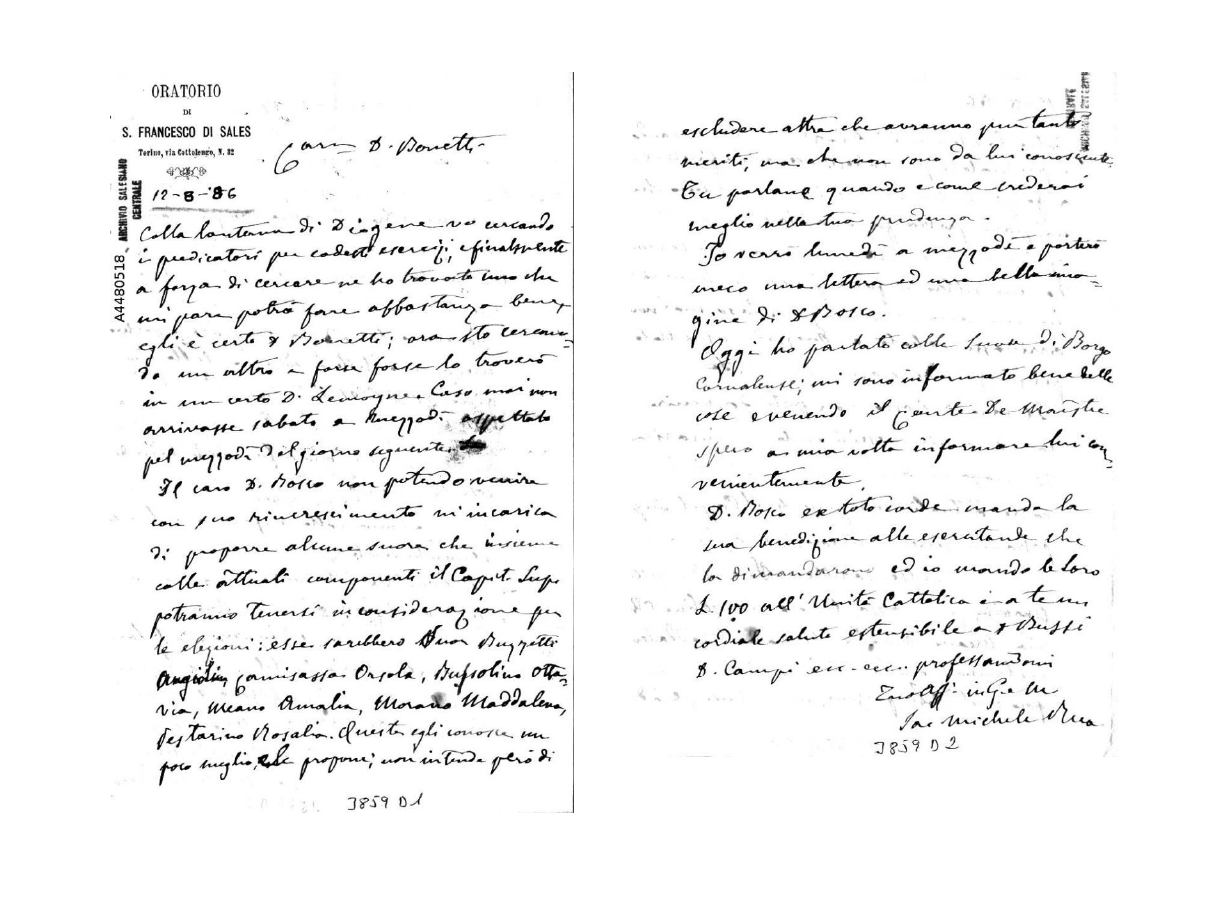 ORATORIO
DI
S. FRANCESCO DI SALES
Torino, via Cottolengo, N. 32
12-8-86
ARCHIVIO SALESIANO
CENTRALE
A4480518
Caro D. Bonetti
Colla lanterna di Diogene vo cercando
i predicatori per codesti esercizi, e finalmente
a forza di cercare ne ho trovato uno che
mi pare potrà fare abbastanza bene,
egli è certo D Bonetti; ora sto cercan-
do un altro e forse forse lo troverò
in un certo D. Lemoyne. Caso mai non
arrivasse sabato a mezzodì aspettalo
pel mezzodì del giorno seguente
Il caro D. Bosco non potendo venire
con suo rincrescimento m'incarica
di proporre alcune suore che insieme
colle attuali componenti il Capit. Sup.
potranno tenersi in considerazione per
le elezioni: esse sarebbero Suor Buzzetti
Angiolina, Camisassa Orsola, Bussolino Otta-
via, Meano Amalia, Morano Maddalena,
Testarino Rosalia. Queste egli conosce un
poco meglio e le propone; non intende però di
3859 D1
escludere altre che avranno pur tanto
meriti, ma che non sono da lui conosciute.
Tu parlane quando e come crederai
meglio nella tua prudenza.
Io verrò lunedì a mezzodì e porterò
meco una lettera ed una bella ima-
gine di D Bosco.
Oggi ho parlato colle Suore di Borgo
Cornalense; mi sono informato bene delle
cose e venendo il Conte De Maistre
spero a mia volta informare lui con-
venientemente.
D. Bosco ex toto corde manda la
sua benedizione alle esercitande che
la dimandarono ed io mando le loro
L. 100 all' Unità Cattolica e a te un
cordiale saluto estensibile a D Bussi
D. Campi ecc. ecc. professandomi
Tuo Aff. in G. e M.
Sac Michele Rua
3859 D2